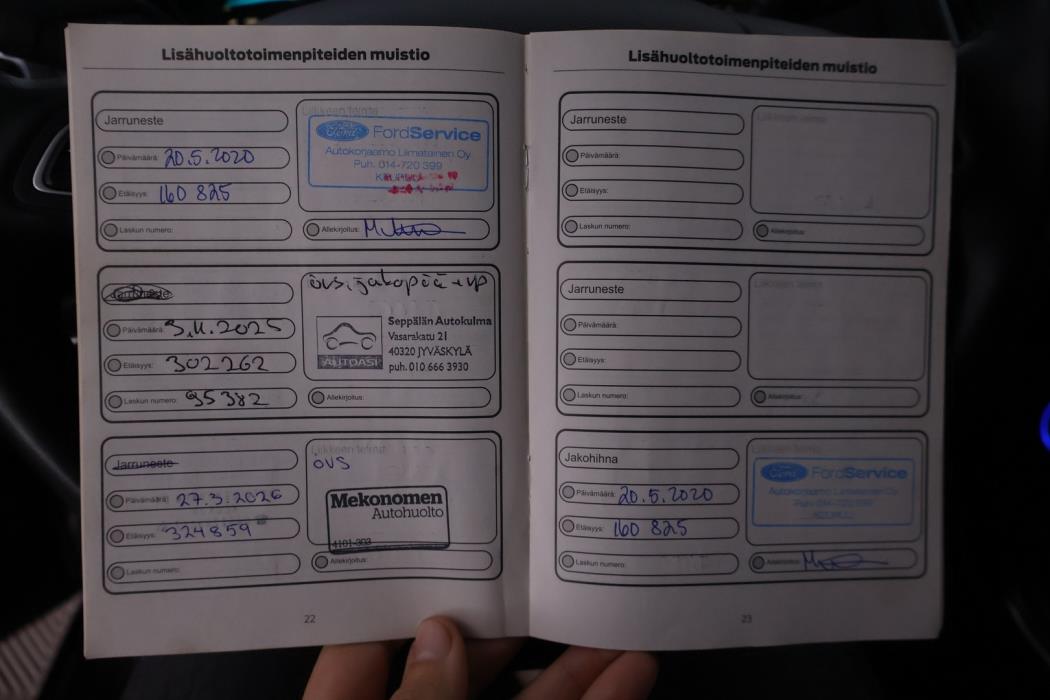 Lisähuoltotoimenpiteiden muistio
Jarruneste
Päivämäärä: 20.5.2020
Etäisyys: 160 825
Laskun numero:
Liikkeen leima
Ford FordService
Autokorjaamo Liimatainen Oy
Puh. 014-720 399
Allekirjoitus:
Jarruneste
Päivämäärä: 3.11.2025
Etäisyys: 302262
Laskun numero: 95382
övs, jakopää + vp
AUTOASI
Seppälän Autokulma
Vasarakatu 21
40320 JYVÄSKYLÄ
puh. 010 666 3930
Allekirjoitus:
Jarruneste
Päivämäärä: 27.3.2026
Etäisyys: 324859
Laskun numero:
Liikkeen leima
övs
Mekonomen
Autohuolto
4101-303
Allekirjoitus:
22
Lisähuoltotoimenpiteiden muistio
Jarruneste
Päivämäärä:
Etäisyys:
Laskun numero:
Liikkeen leima
Allekirjoitus:
Jarruneste
Päivämäärä:
Etäisyys:
Laskun numero:
Liikkeen leima
Allekirjoitus:
Jakohihna
Päivämäärä: 20.5.2020
Etäisyys: 160 825
Laskun numero:
Liikkeen leima
Ford FordService
Autokorjaamo Liimatainen Oy
Puh. 014-720 399
Allekirjoitus:
23